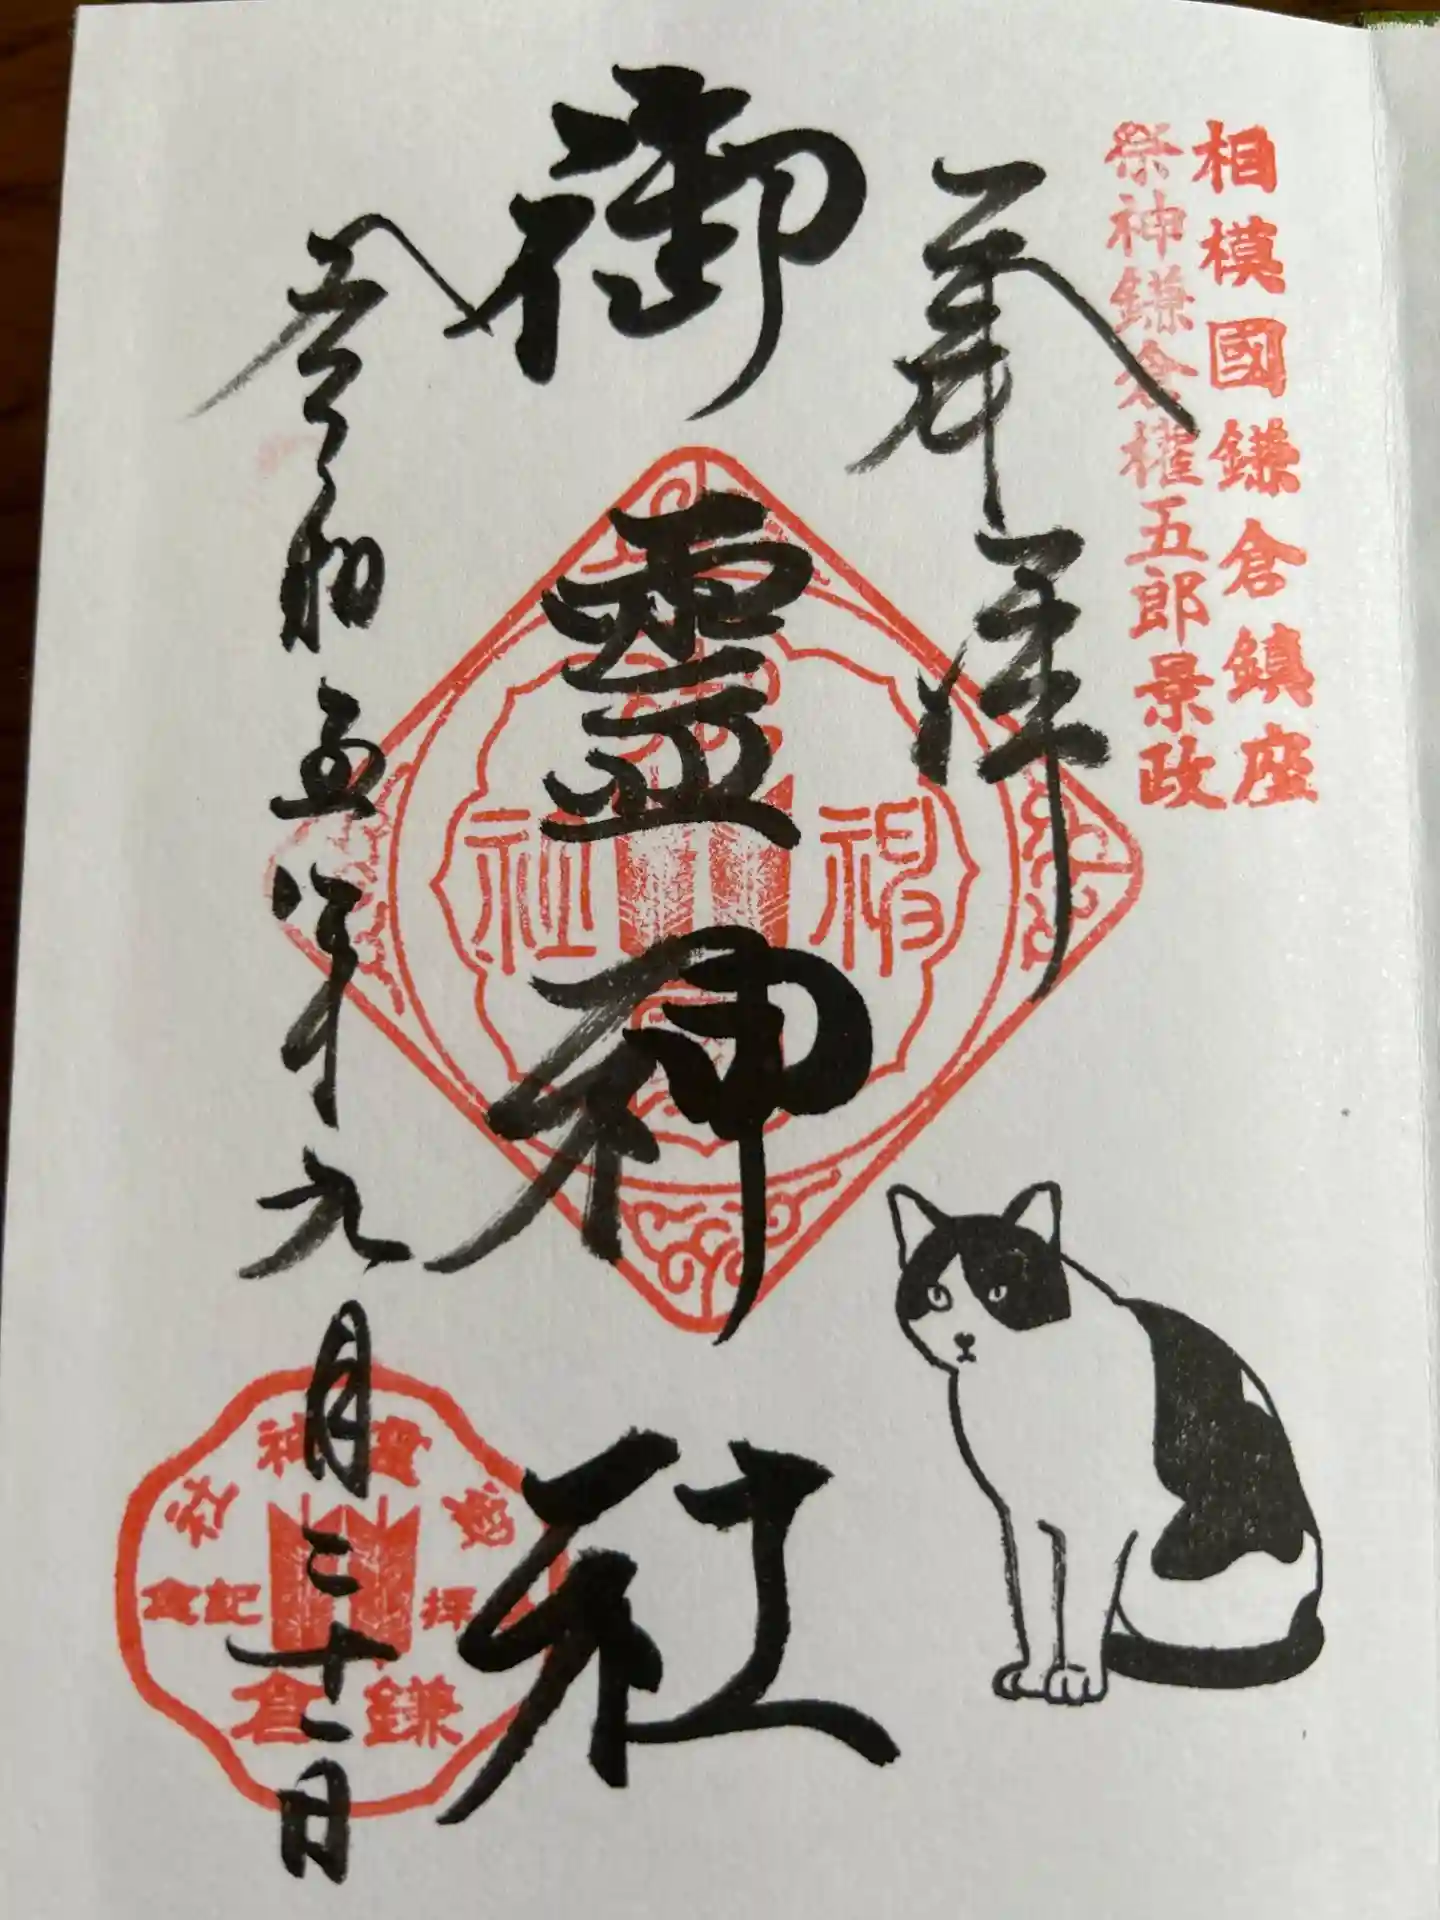 相模國鎌倉鎮座
祭神鎌倉權五郎景政
奉拝
御霊神社
令和五年九月二十一日
神社
御靈神社
拝記念
鎌倉